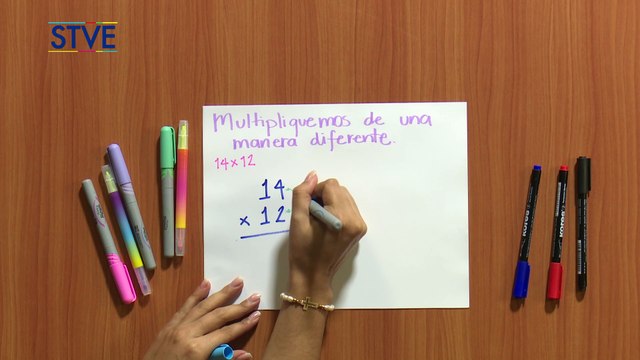 STVE
Multipliquemos de una
manera diferente.
14 x 12
14
x 12